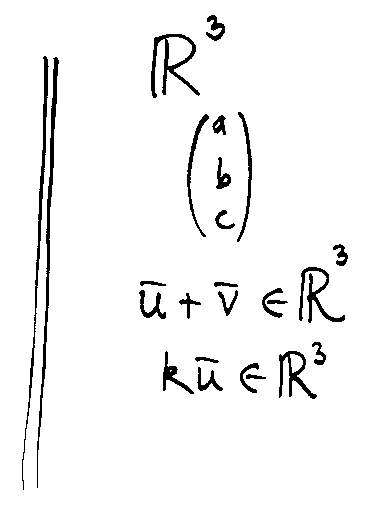 ℝ³
(a
b
c)
ū + v̄ ∈ ℝ³
kū ∈ ℝ³